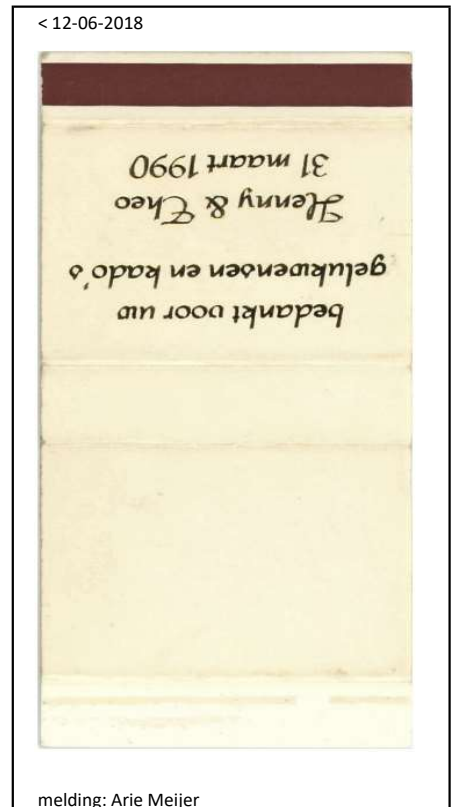 < 12-06-2018
bedankt voor uw
gelukwensen en kado's
Henny & Theo
31 maart 1990
melding: Arie Meijer